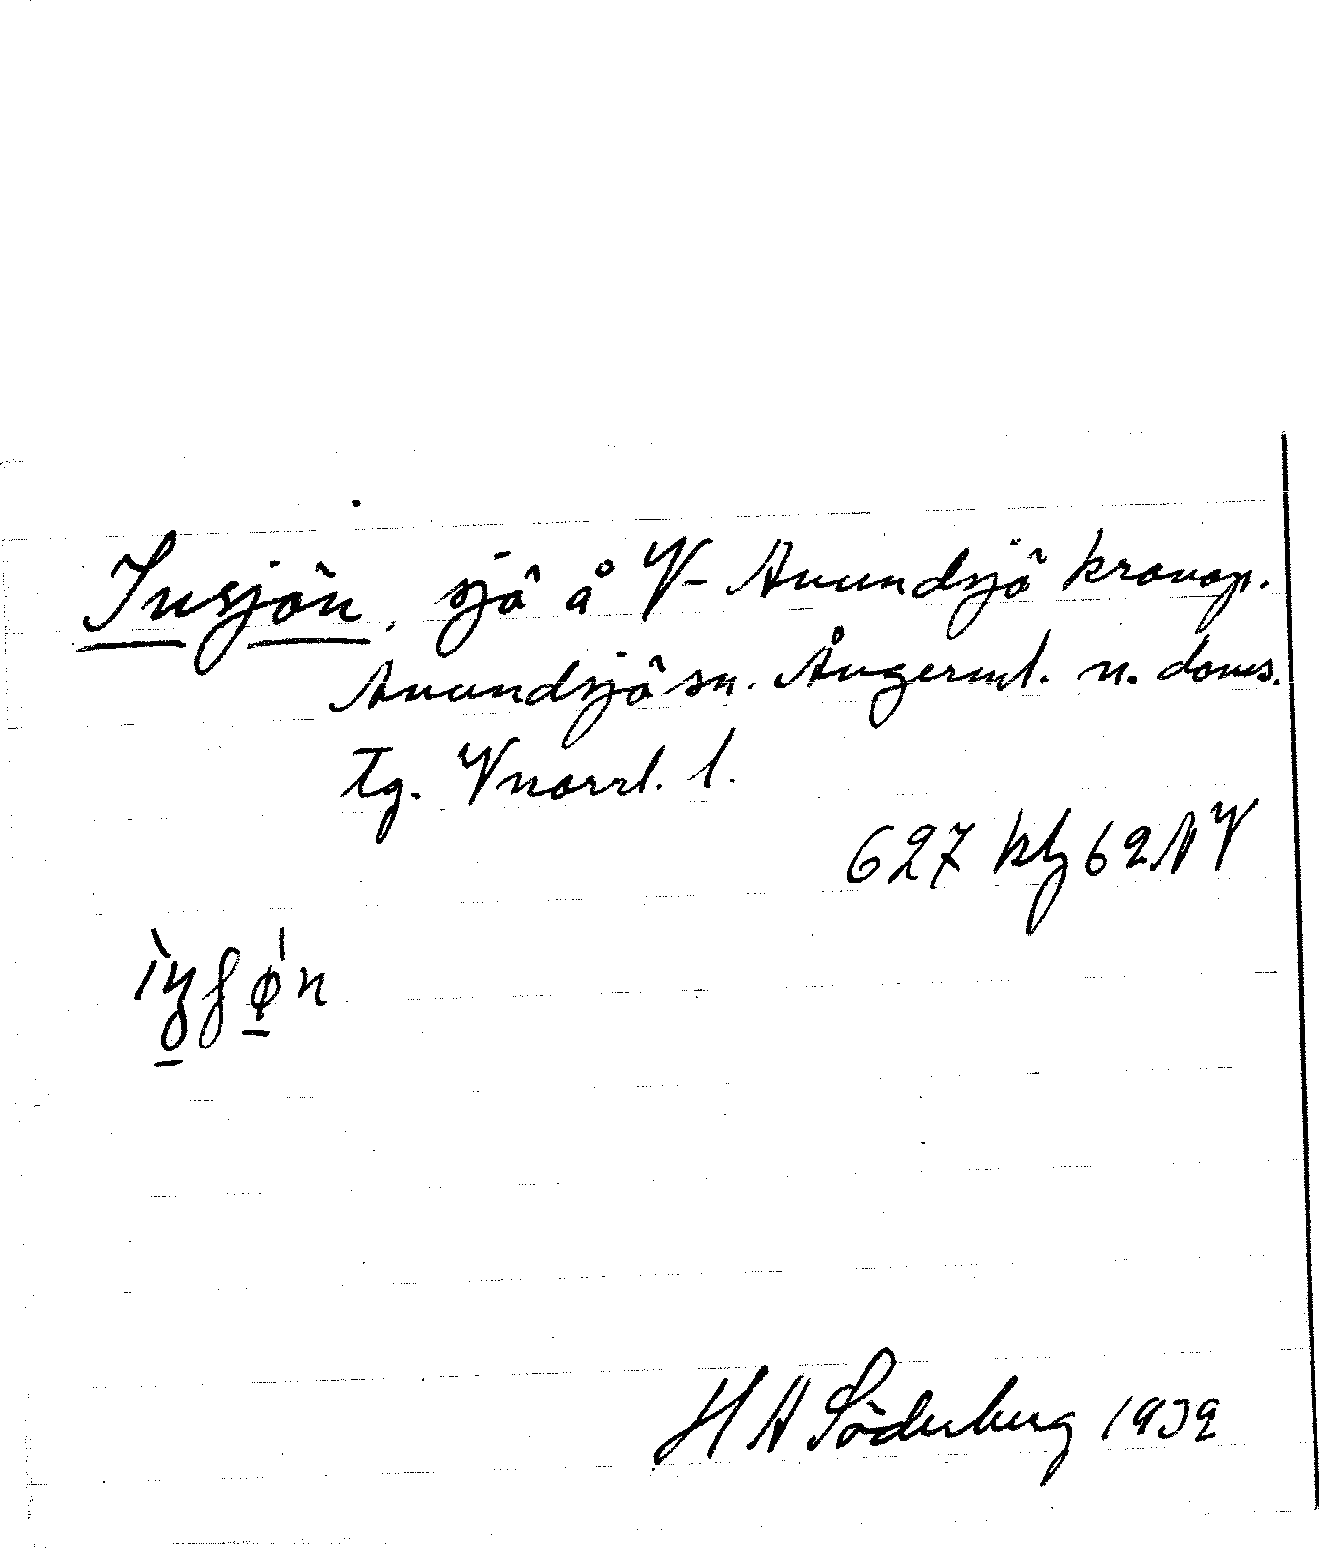 Insjön, sjö å V- Anundsjö kronop.
Anundsjö sn. Ångerml. n. doms.
tg. Vnorrl. l.
627 kbl 62 NV
H A Söderberg 1932